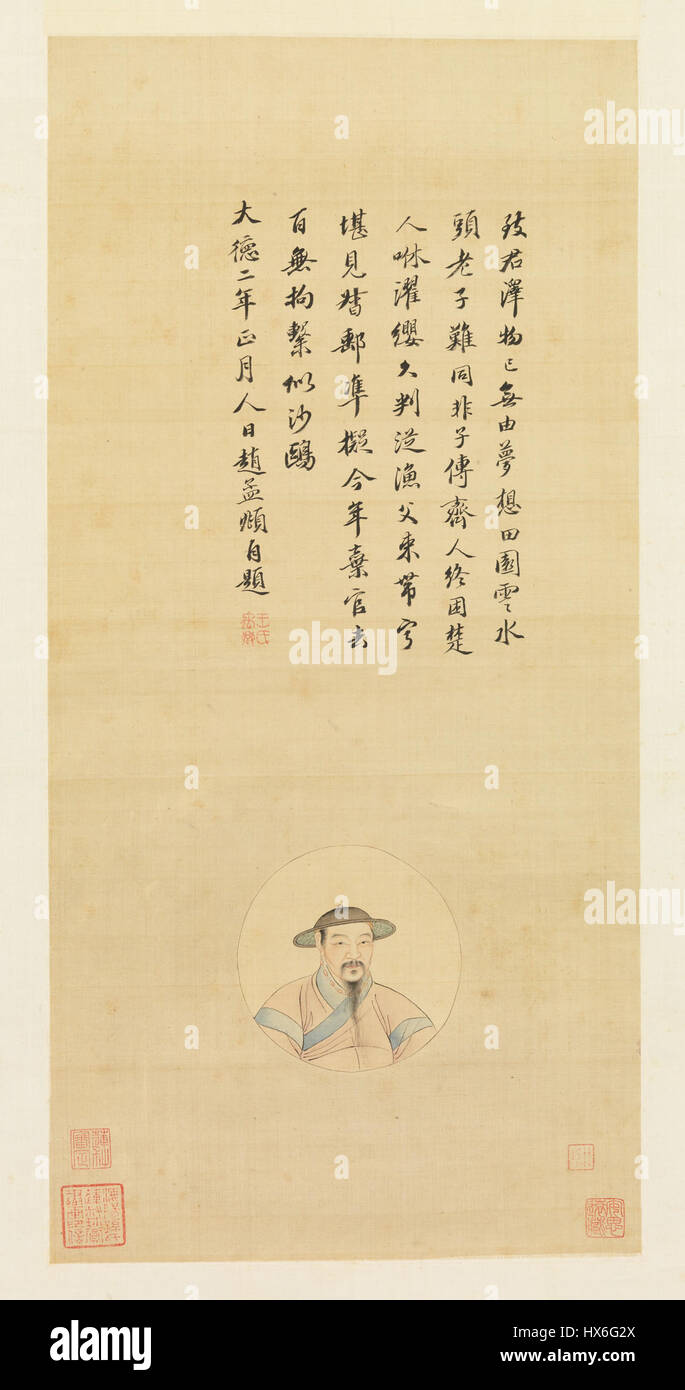 致君澤物已無由夢想田園雲水
頭老子難同非子傳齊人終困楚
人咻濯纓久判從漁父束帶寧
堪見督郵凖擬今年棄官去
百無拘繫似沙鷗
大德二年正月人日趙孟頫自題
alamy
alamy
alamy
Image ID: HX6G2X
www.alamy.com